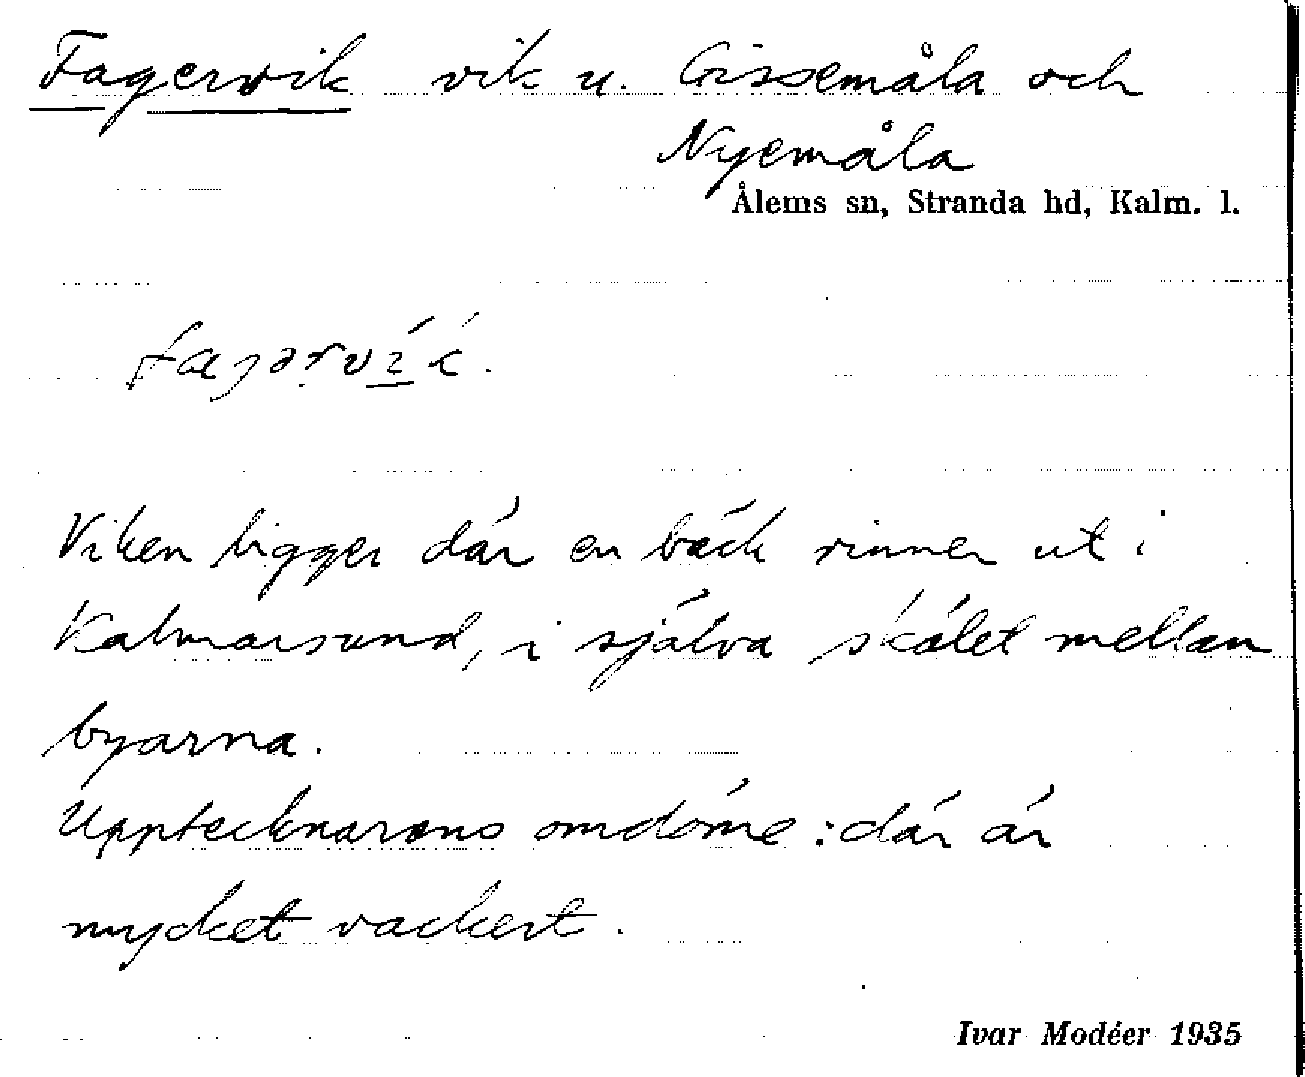 Fagervik vik u. Gissemåla och
Nyemåla
Ålems sn, Stranda hd, Kalm. l.
Viken ligger där en bäck rinner ut i
Kalmarsund, i själva skälet mellan
byarna.
Upptecknarens omdöme: där är
mycket vackert.
Ivar Modéer 1935